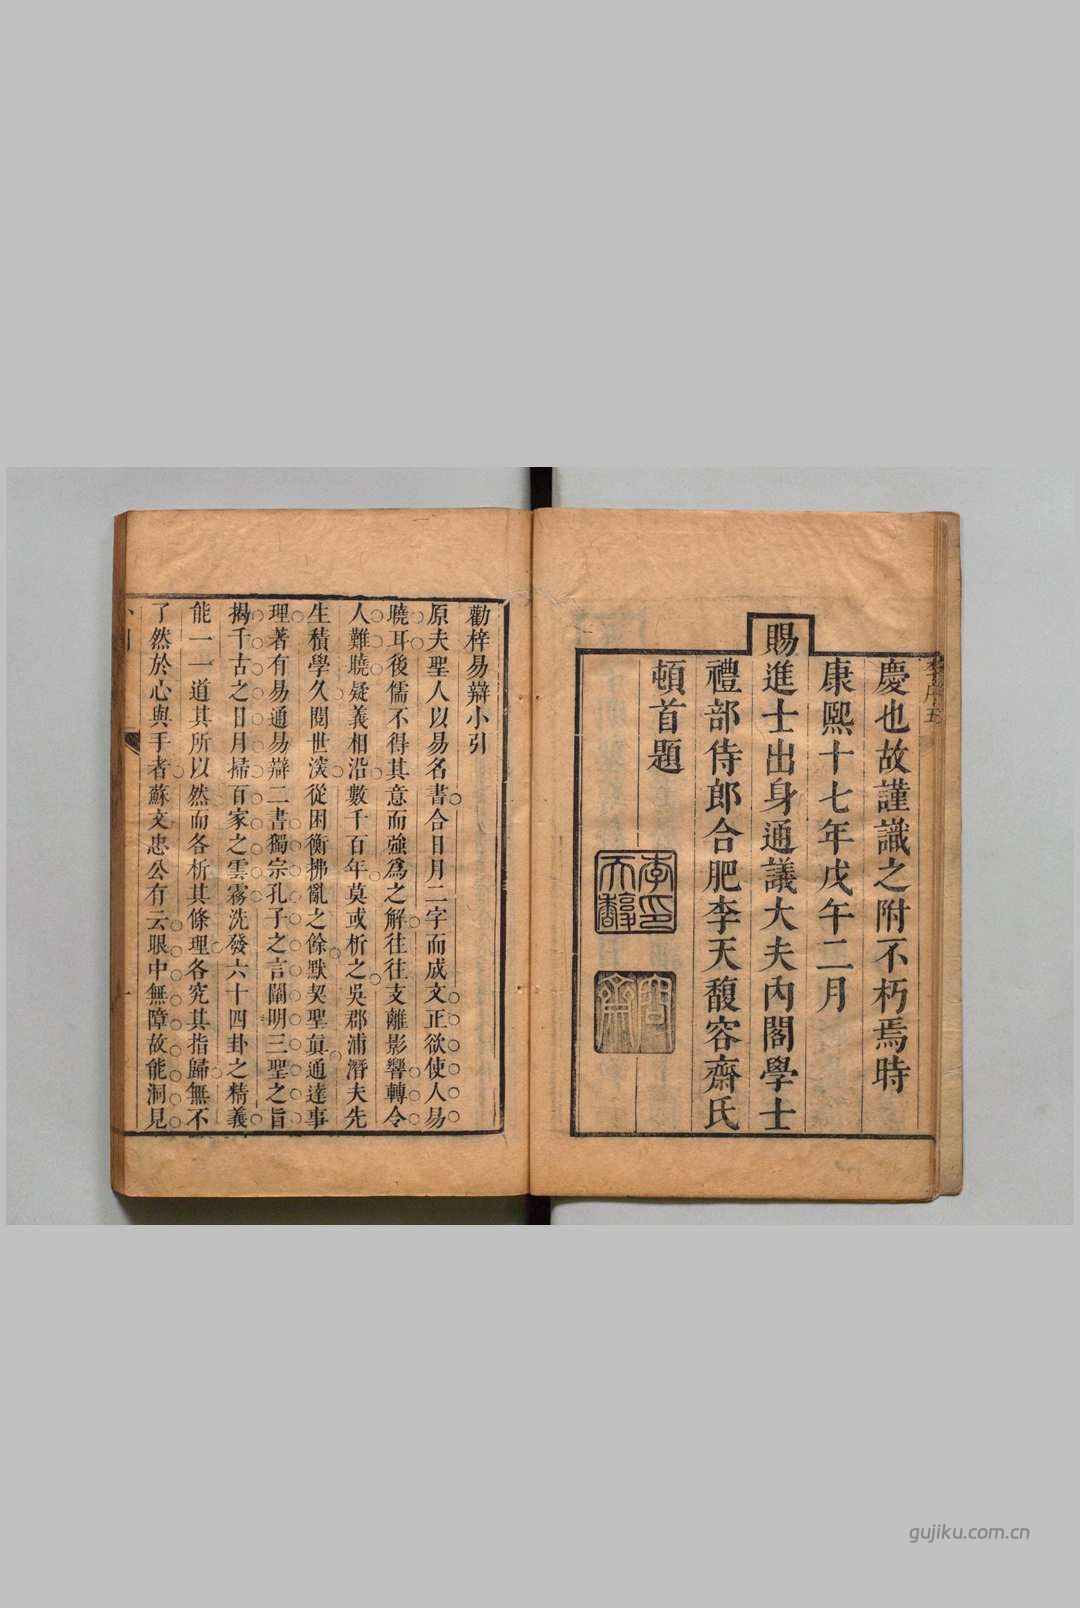 慶也故謹識之附不朽焉時
康熙十七年戊午二月
賜進士出身通議大夫內閣學士
禮部侍郎合肥李天馥容齋氏
頓首題
李印天馥
容齋
李序五
勸梓易辯小引
原夫聖人以易名書合日月二字而成文正欲使人易
曉耳後儒不得其意而強爲之解往往支離影響轉令
人難曉疑義相沿數千百年莫或析之吳郡浦潛夫先
生積學久閱世深從困衡拂亂之餘默契聖眞通達事
理著有易通易辯二書獨宗孔子之言闡明三聖之旨
揭千古之日月掃百家之雲霧洗發六十四卦之精義
能一一道其所以然而各析其條理各究其指歸無不
了然於心與手者蘇文忠公有云眼中無障故能洞見
gujiku.com.cn